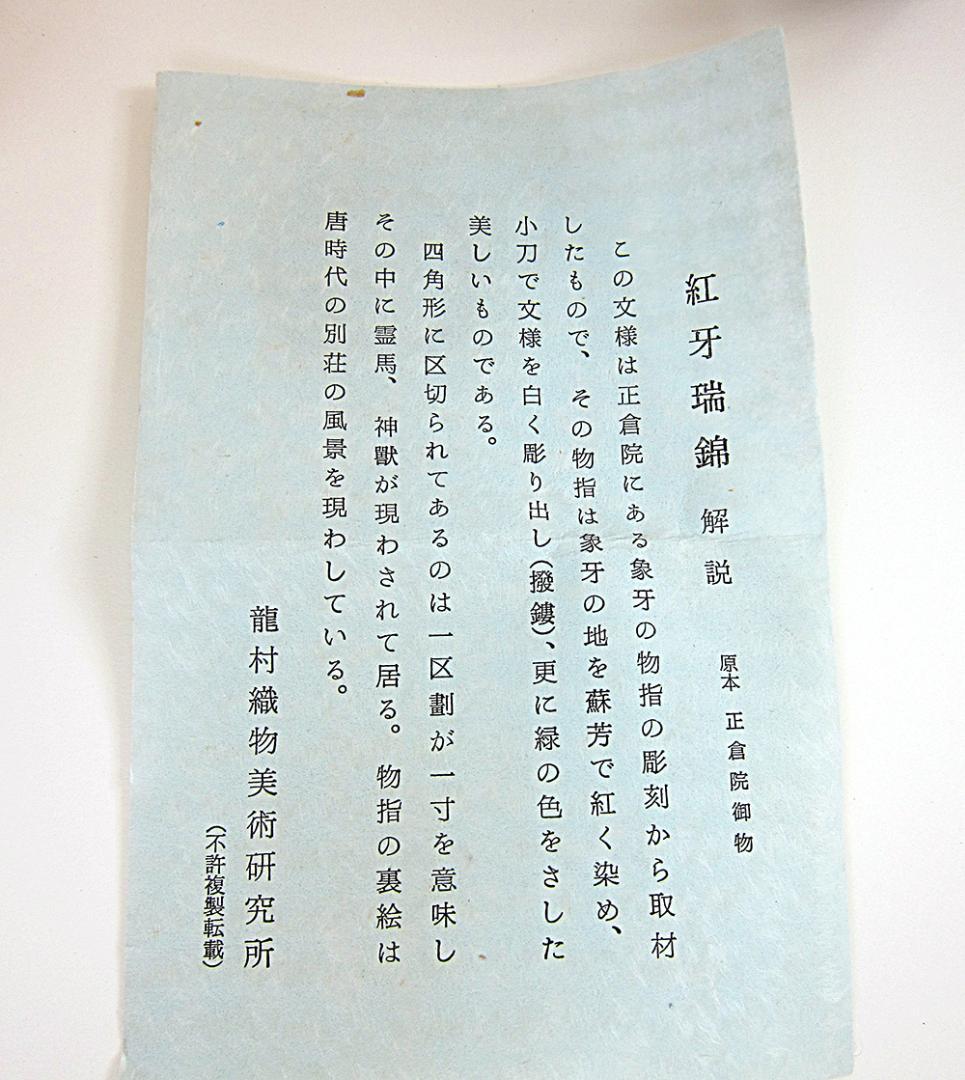 紅牙瑞錦 解説 原本 正倉院御物
この文様は正倉院にある象牙の物指の彫刻から取材
したもので、その物指は象牙の地を蘇芳で紅く染め、
小刀で文様を白く彫り出し(撥鏤)、更に緑の色をさした
美しいものである。
四角形に区切られてあるのは一区劃が一寸を意味し
その中に霊馬、神獸が現わされて居る。物指の裏絵は
唐時代の別荘の風景を現わしている。
龍村織物美術研究所
(不許複製転載)